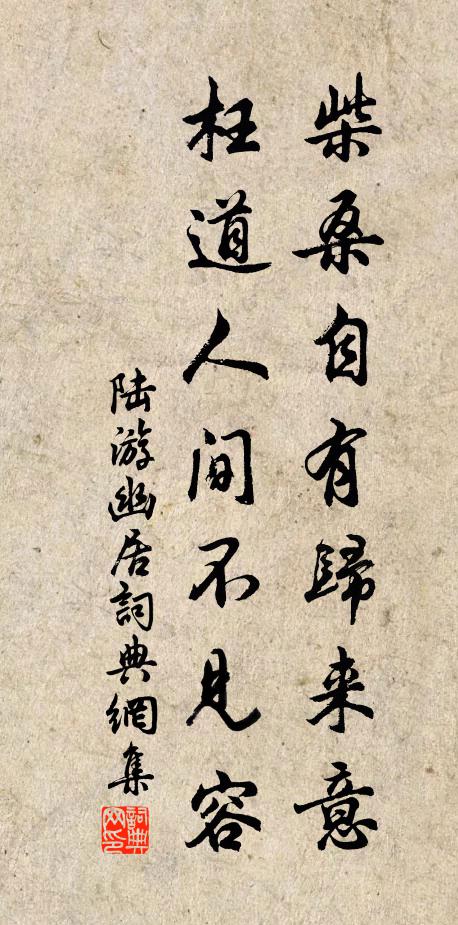 柴桑自有歸来意
枉道人间不見容
陆游幽居詞典網集
詞典网印